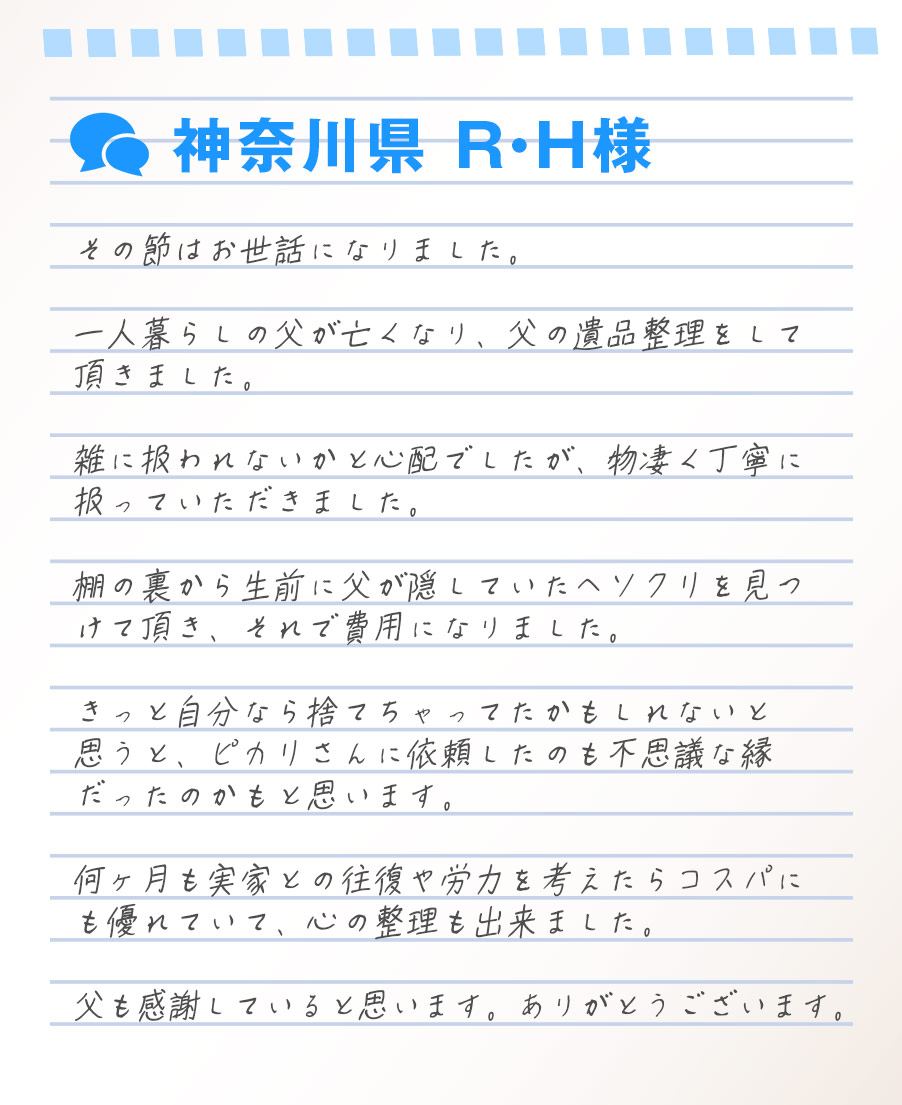 神奈川県 R・H様
その節はお世話になりました。
一人暮らしの父が亡くなり、父の遺品整理をして
頂きました。
雑に扱われないかと心配でしたが、物凄く丁寧に
扱っていただきました。
棚の裏から生前に父が隠していたヘソクリを見つ
けて頂き、それで費用になりました。
きっと自分なら捨てちゃってたかもしれないと
思うと、ピカリさんに依頼したのも不思議な縁
だったのかもと思います。
何ヶ月も実家との往復や労力を考えたらコスパに
も優れていて、心の整理も出来ました。
父も感謝していると思います。ありがとうございます。